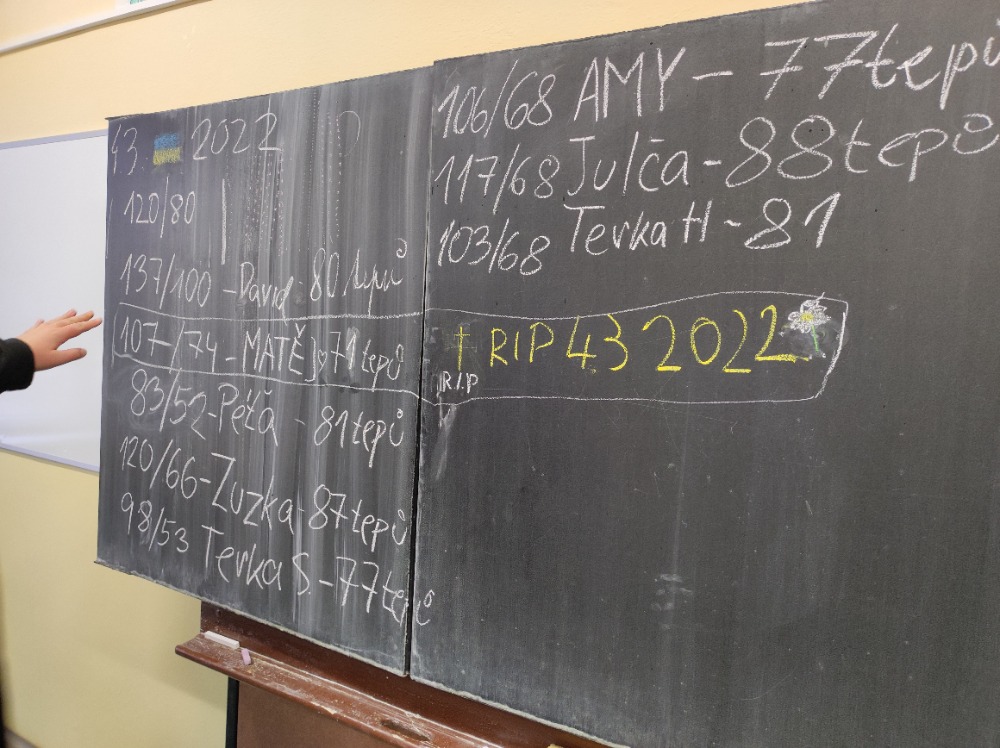 43. 2022
120/80
137/100 - David - 80 tepů
107/74 - MATĚJ 71 tepů
83/52 - Péťa - 81 tepů
120/66 - Zuzka - 87 tepů
98/53 Terka S. - 77 tepů
106/68 AMY - 77 tepů
117/68 Julča - 88 tepů
103/68 Terka H - 81
† RIP 43 2022
R.I.P